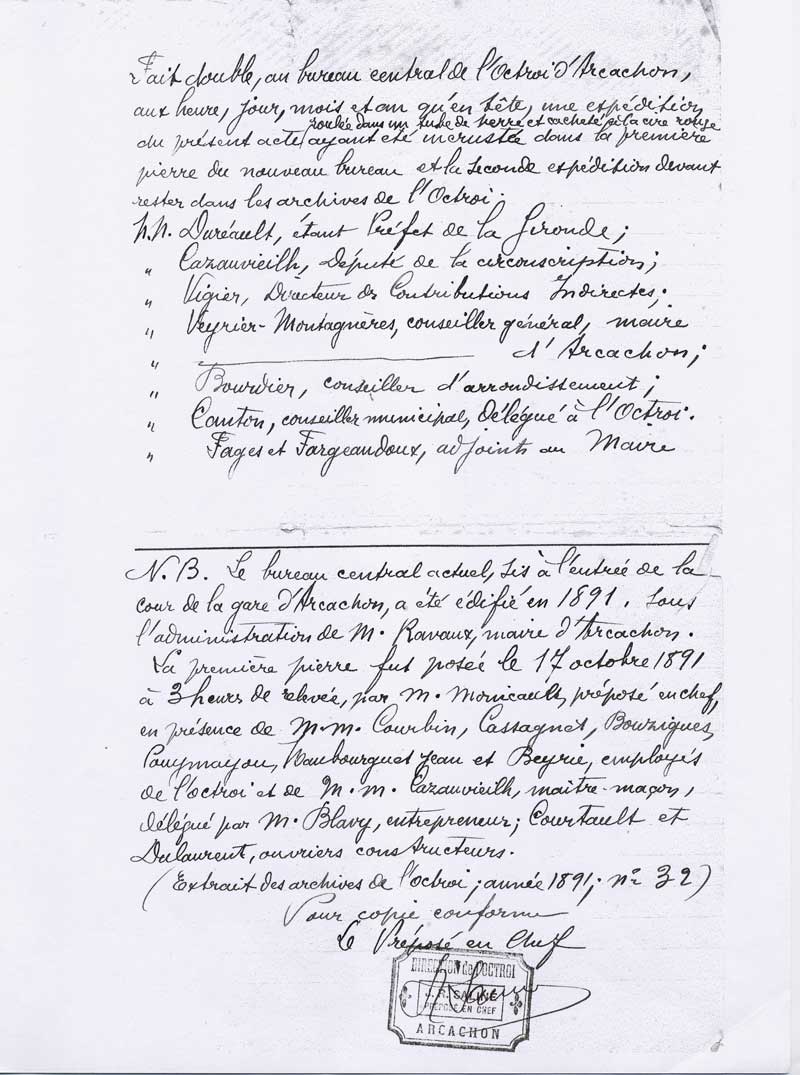 Fait double, au bureau central de l'Octroi d'Arcachon,
aux heure, jour, mois et an qu'en tête, une expédition
roulée dans un tube de verre et cacheté à la cire rouge
du présent acte ayant été incrustée dans la première
pierre du nouveau bureau et la seconde expédition devant
rester dans les archives de l'Octroi.
M.M. Duréault, étant Préfet de la Gironde;
" Cazauvieilh, Député de la circonscription;
" Vigier, Directeur des Contributions Indirectes;
" Veyrier-Montagnères, conseiller général, maire
" d'Arcachon;
" Bourdier, conseiller d'arrondissement;
" Canton, conseiller municipal, délégué à l'Octroi.
" Fages et Fargeaudoux, adjoints au Maire
N.B. Le bureau central actuel, sis à l'entrée de la
cour de la gare d'Arcachon, a été édifié en 1891. Sous
l'administration de M. Ravaux, maire d'Arcachon.
La première pierre fut posée le 17 octobre 1891
à 3 heurs de relevée, par M. Monicault, préposé en chef,
en présence de M.M. Courbin, Cassagnet, Bouzigues,
Pouymayou, Naubourguet Jean et Beyrie, employés
de l'octroi et de M.M. Cazauvieilh, maître-maçon,
délégué par M. Blavy, entrepreneur; Courtault et
Dulaurent, ouvriers constructeurs.
(Extrait des archives de l'octroi; année 1891; n° 32)
Pour copie conforme
Le Préposé en Chef
DIRECTION de l'OCTROI
J. R. SALINE
PRÉPOSÉ EN CHEF
ARCACHON